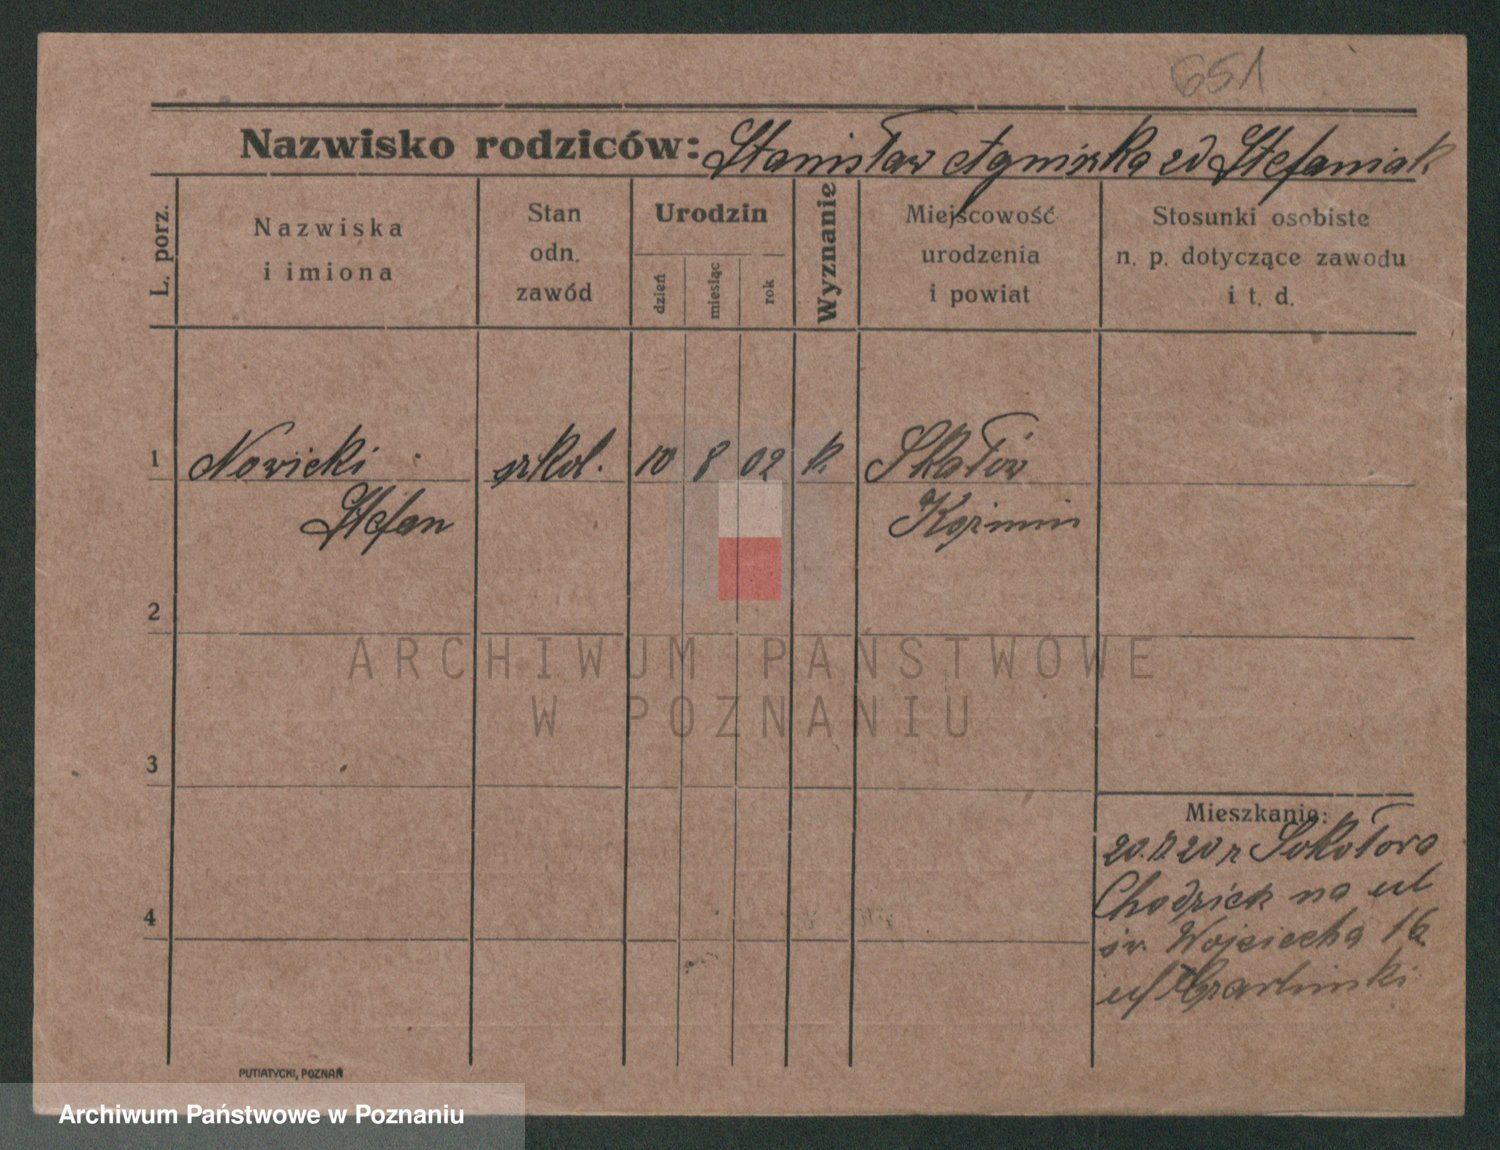 651
Nazwisko rodziców: Stanisław Agniszka zd Stefaniak
L. porz.
Nazwiska
i imiona
Stan
odn.
zawód
Urodzin
dzień
miesiąc
rok
Wyznanie
Miejscowość
urodzenia
i powiat
Stosunki osobiste
n. p. dotyczące zawodu
i t. d.
1 Nowicki szkol. 10 8 02 k. Skałów
Stefan Kozmin
2
ARCHIWUM PAŃSTWOWE
W POZNANIU
3
Mieszkanie:
20. 20 r Sokołowa
Chodzież na ul
4
św. Wojciecha 16
u
PUTIATYCKI, POZNAŃ
Archiwum Państwowe w Poznaniu